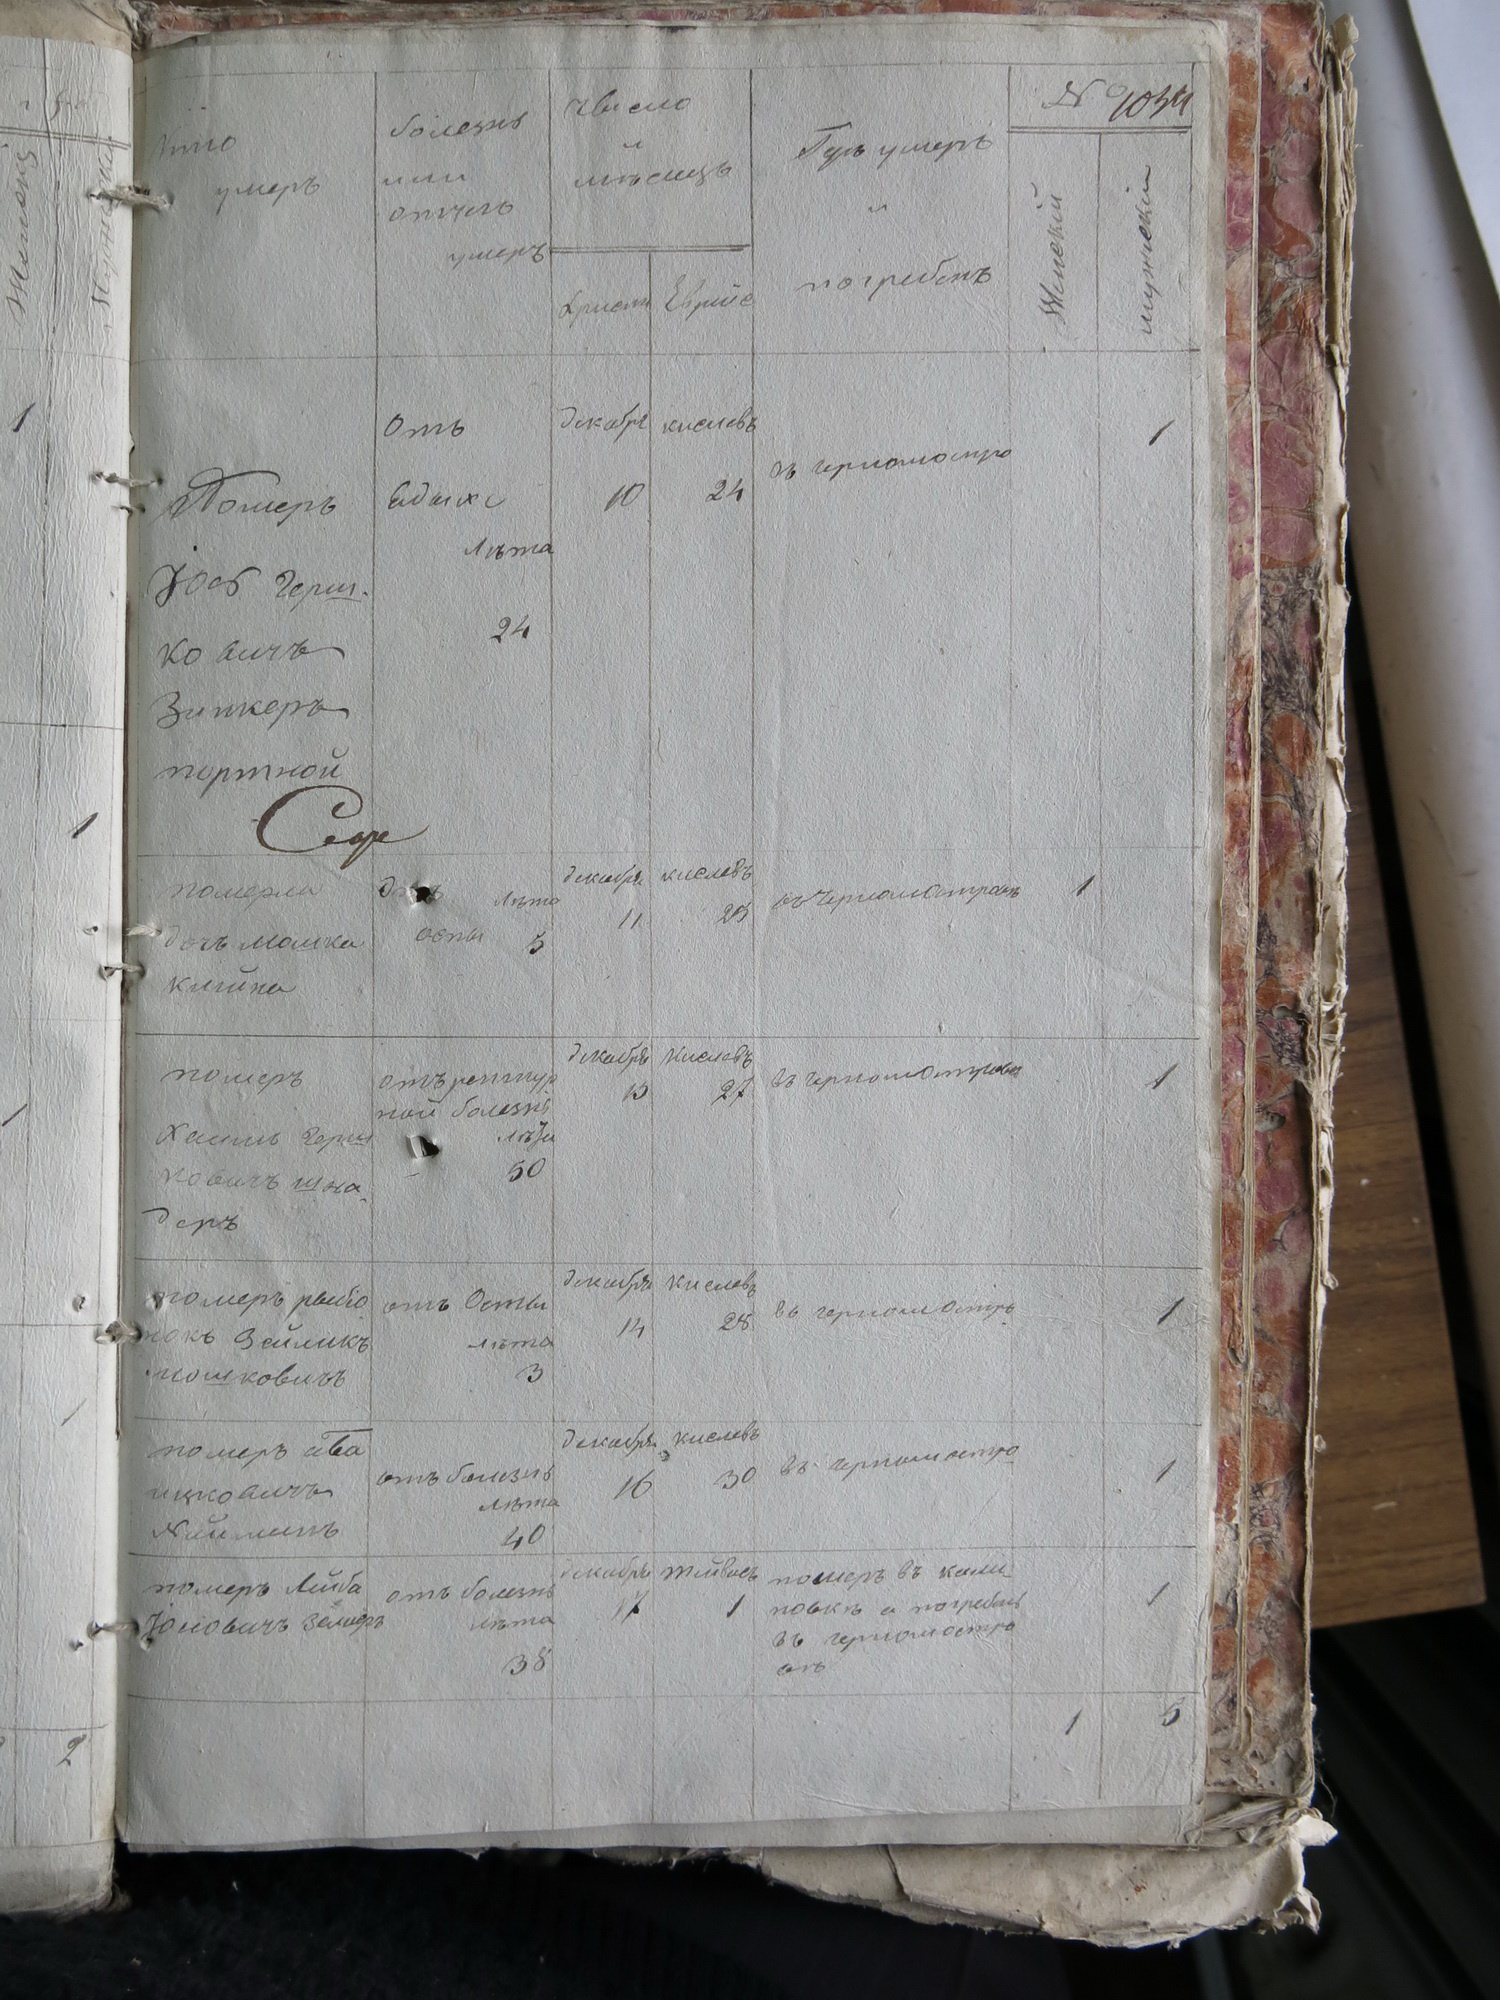 № 1034
Кто
умеръ
болезнь
или
отчего
умеръ
Число
и
мѣсяцъ
Христи
Еврйс
Гдѣ умеръ
и
погребенъ
Женский
мужнский
Померъ
Іось Герш-
ковичъ
Зинкеръ
портной
отъ
лѣта
24
декабря
10
кислевъ
24
въ черномостро
1
померла
дочь Мошка
отъ
оспы
лѣта
5
декабря
11
кислевъ
25
въ Черномостровѣ
1
померъ
Хаимъ Герш
ковичъ шна
деръ
ной болезни
лѣта
50
декабря
13
Кислевъ
27
въ черномостровѣ
1
померъ рыбio
нокъ Зейликъ
мошковичъ
отъ Оспы
лѣта
3
декабря
14
Кислевъ
28
въ черномостро
1
померъ аба
ицковичъ
Найманъ
отъ болезнь
лѣта
40
декабря
16
кислевъ
30
въ черномостро
1
померъ Лейба
отъ болезнь
лѣта
38
декабря
17
тейвесъ
1
померъ въ кали-
новкѣ а погребенъ
въ черномостро
вѣ
1
1
5
1
1
1
2